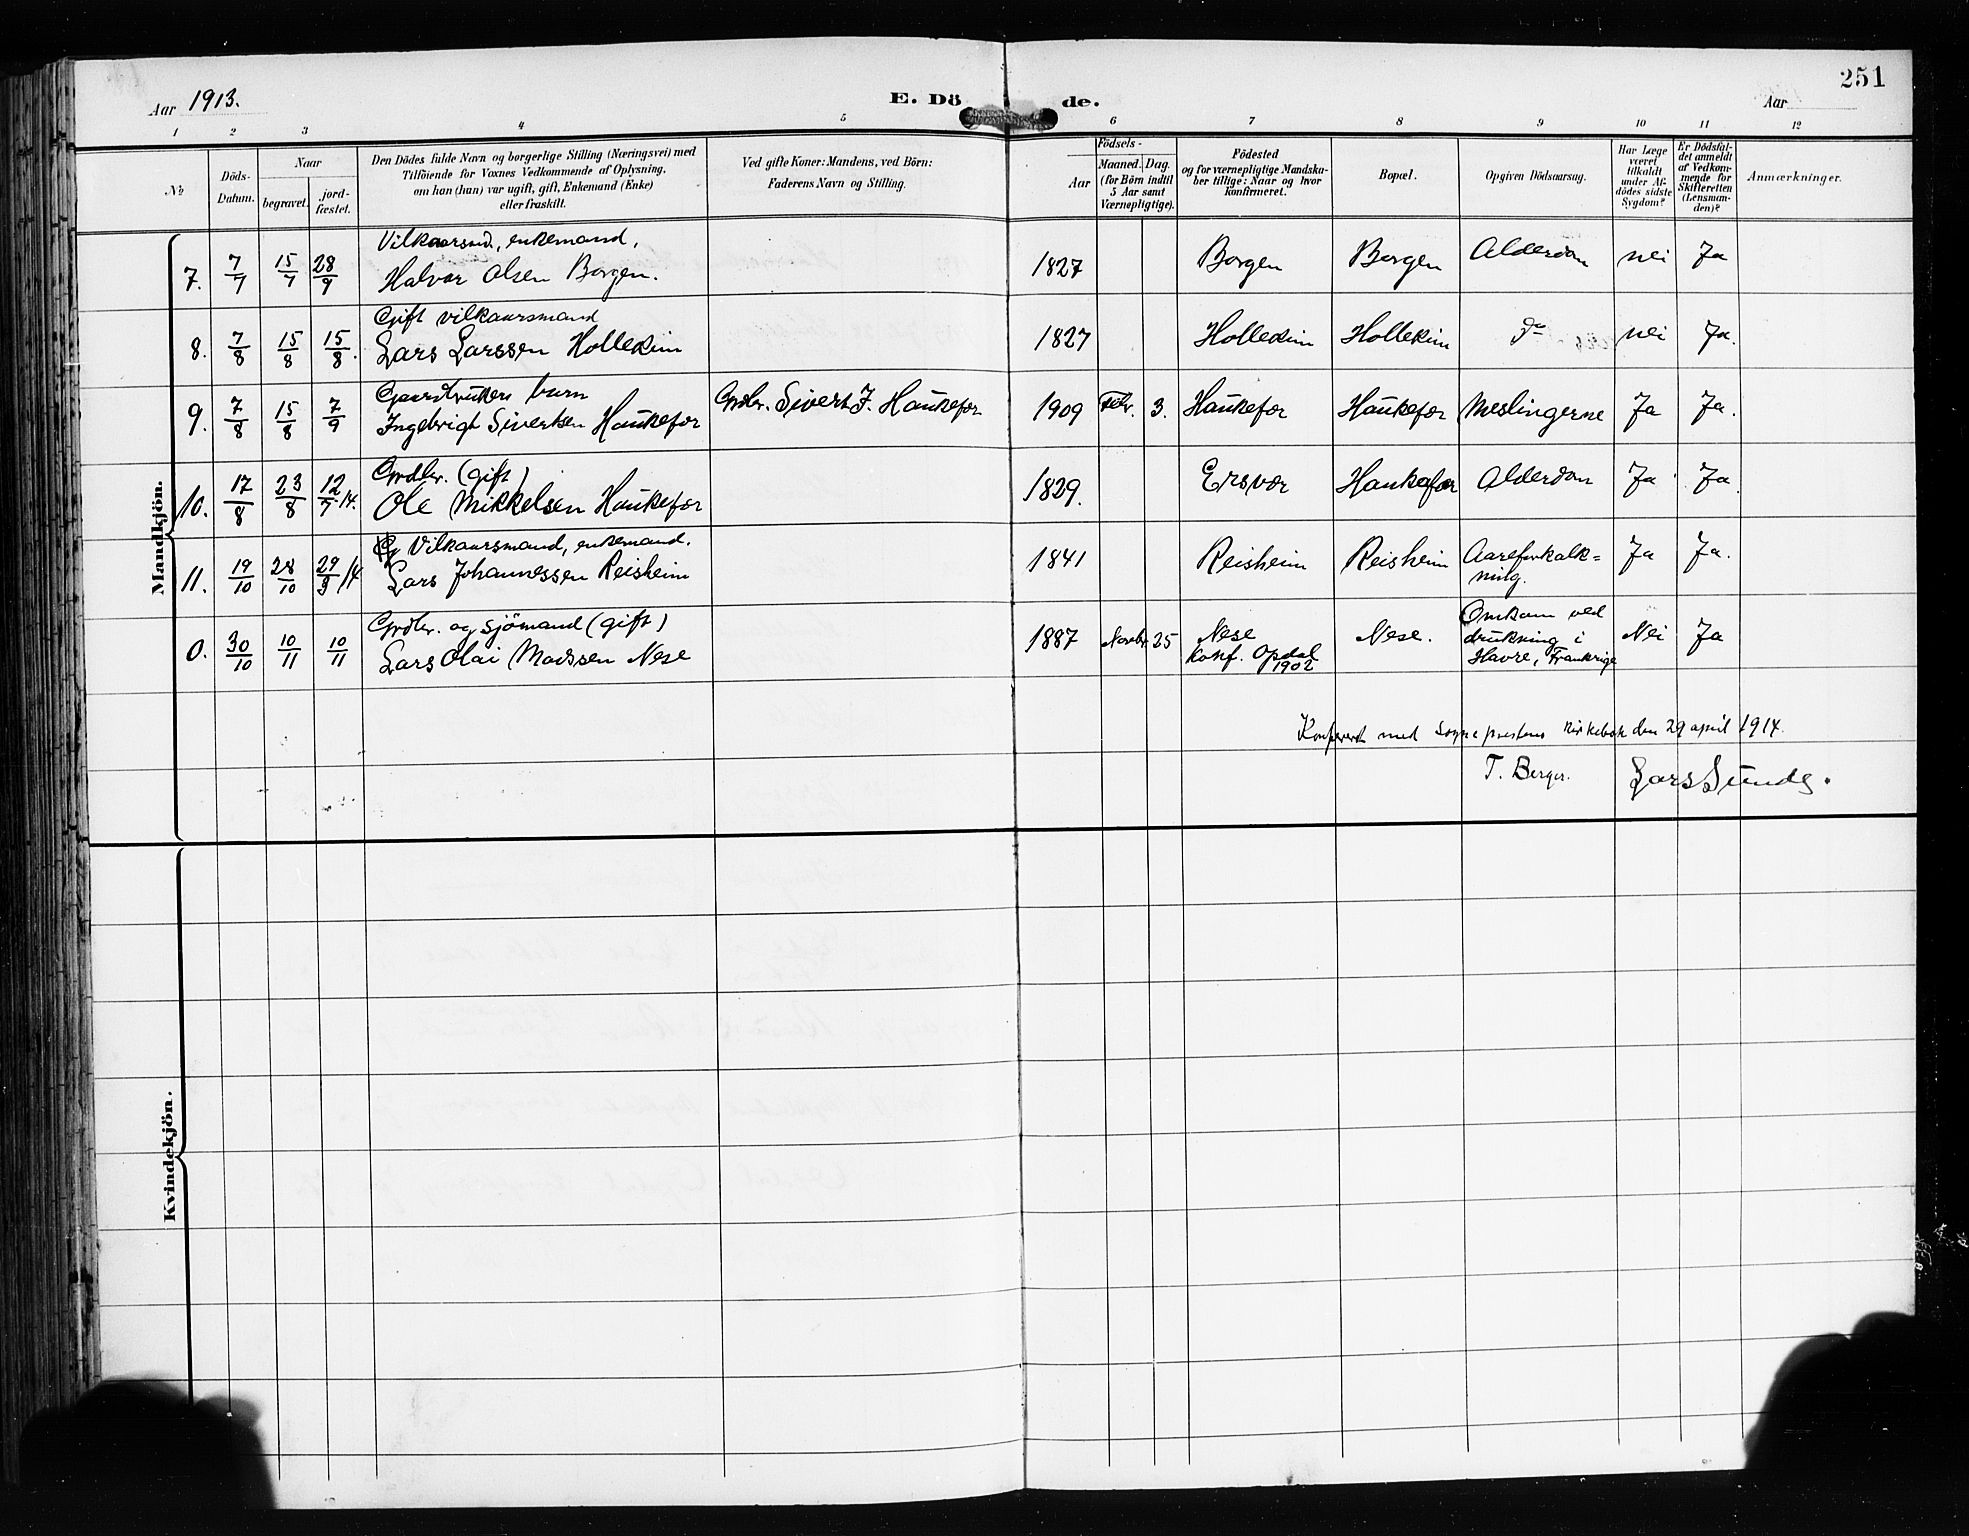 251
Aar 1913.
E. Dö de.
Aar
1 2 3 4 5 6 7 8 9 10 11 12
No
Döds-
Datum.
Naar
begravet.
jord-
fæstet.
Den Dödes fulde Navn og borgerlige Stilling (Næringsvei) med
Tilföiende for Voxnes Vedkommende af Oplysning,
om han (hun) var ugift, gift, Enkemand (Enke)
eller fraskilt.
Ved gifte Koner: Mandens, ved Börn:
Faderens Navn og Stilling.
Födsels-
Aar
Maaned. Dag.
(for Börn indtil
5 Aar samt
Værnepligtige).
Födested
og for værnepligtige Mandska-
ber tillige: Naar og hvor
konfirmeret.
Bopæl.
Opgiven Dödsaarsag.
Har Læge
været
tilkaldt
under Af-
dödes sidste
Sygdom?
Er Dödsfal-
det anmeldt
af Vedkom-
mende for
Skifteretten
(Lensman-
den)?
Anmærkninger.
Mandkjön.
Vilkaarsmd., enkemand,
7. 7/7 15/7 28/9 Halvor Olsen Borgen. 1827 Borgen Borgen Alderdom nei Ja
Gift vilkaarsmand
8. 7/8 15/8 15/8. Lars Larssen Hollekim 1827 Hollekim Hollekim Do nei Ja.
Gaardbrukers barn
9. 7/8 15/8 7/9 Ingebrigt Sivertsen Haukefor Grdbr. Sivert J. Haukefor 1909 Febr. 3. Haukefor Haukefor Meslingerne Ja Ja.
Grdbr. (gift)
10. 17/8 23/8 12/7 14. Ole Mikkelsen Haukefor 1829. Ersvær Haukefor Alderdom Ja Ja
Vilkaarsmand, enkemand.
11. 19/10 28/10 29/3 14 Lars Johannessen Reisheim 1841 Reisheim Reisheim Aareforkalk=
ning. Ja Ja.
Grdbr. og sjömand (gift)
0. 30/10 10/11 10/11 Lars Olai Madssen Nese 1887 Novbr. 25 Nese
Konf. Opdal
1902
Nese.
Omkom ved
drukning i
Havre, Frankrige
Nei Ja
Konferert med Sogneprestens Kirkebok den 29 april 1914.
T. Berger. Lars Sunde.
Kvindekjön.